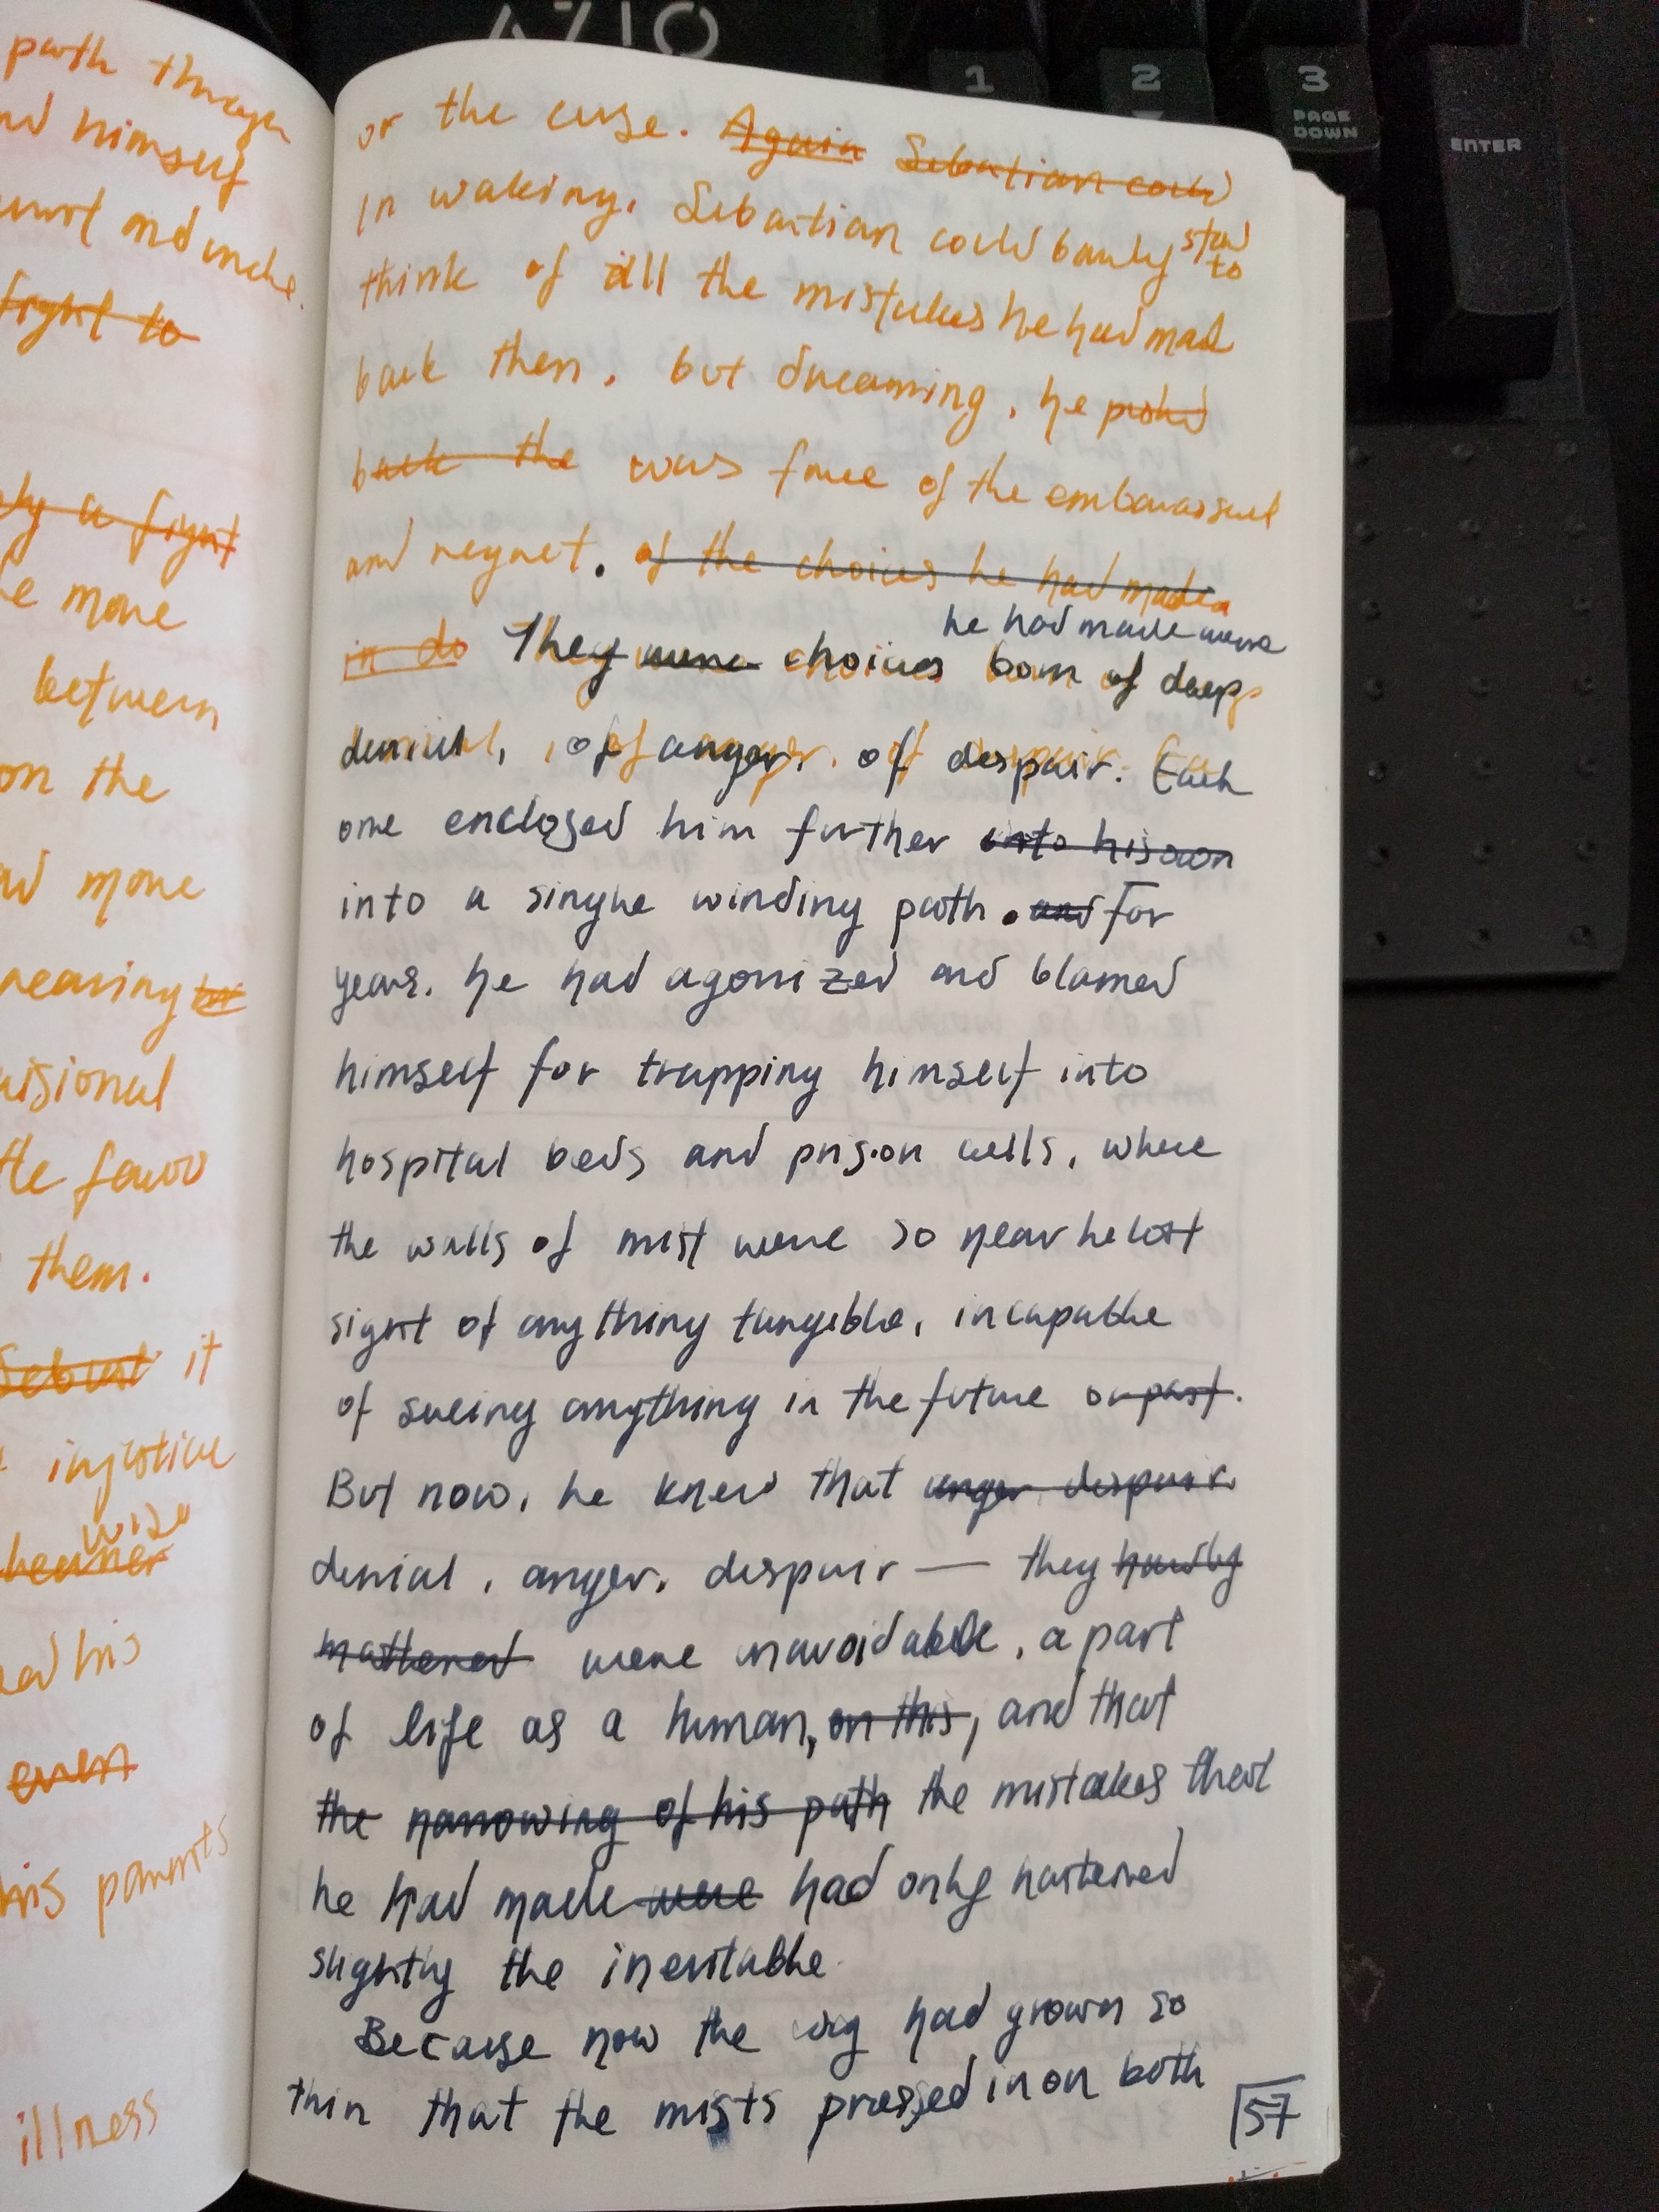 AZIO
1
2
3
PAGE DOWN
ENTER
path through
himself
and
fight to
a fight
move
between
on the
move
nearing
them.
it
injustice
wise
his
even
his parents
illness
or the curse. Again Sebastian could
In waking, Sebastian could barely stand to
think of all the mistakes he had made
back then, but dreaming, he pushed
back the was free of the embarassment
and regret. of the choices he had made
in do They were choices he had made were born of deep
denial, of anger, of despair. Each
one enclosed him further into his own
into a single winding path. and For
years, he had agonized and blamed
himself for trapping himself into
hospital beds and prison cells, where
the walls of mist were so near he lost
sight of anything tangible, incapable
of seeing anything in the future or past.
But now, he knew that anger despair
denial, anger, despair — they hardly
mattered were unavoidable, a part
of life as a human, on this, and that
the narrowing of his path the mistakes that
he had made were had only hastened
slightly the inevitable.
Because now the way had grown so
thin that the mists pressed in on both
57